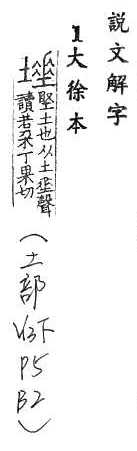 說文解字
1大徐本
埵 堅土也从土垂聲
讀若朶丁果切
（土部
V13下
P5
B2）